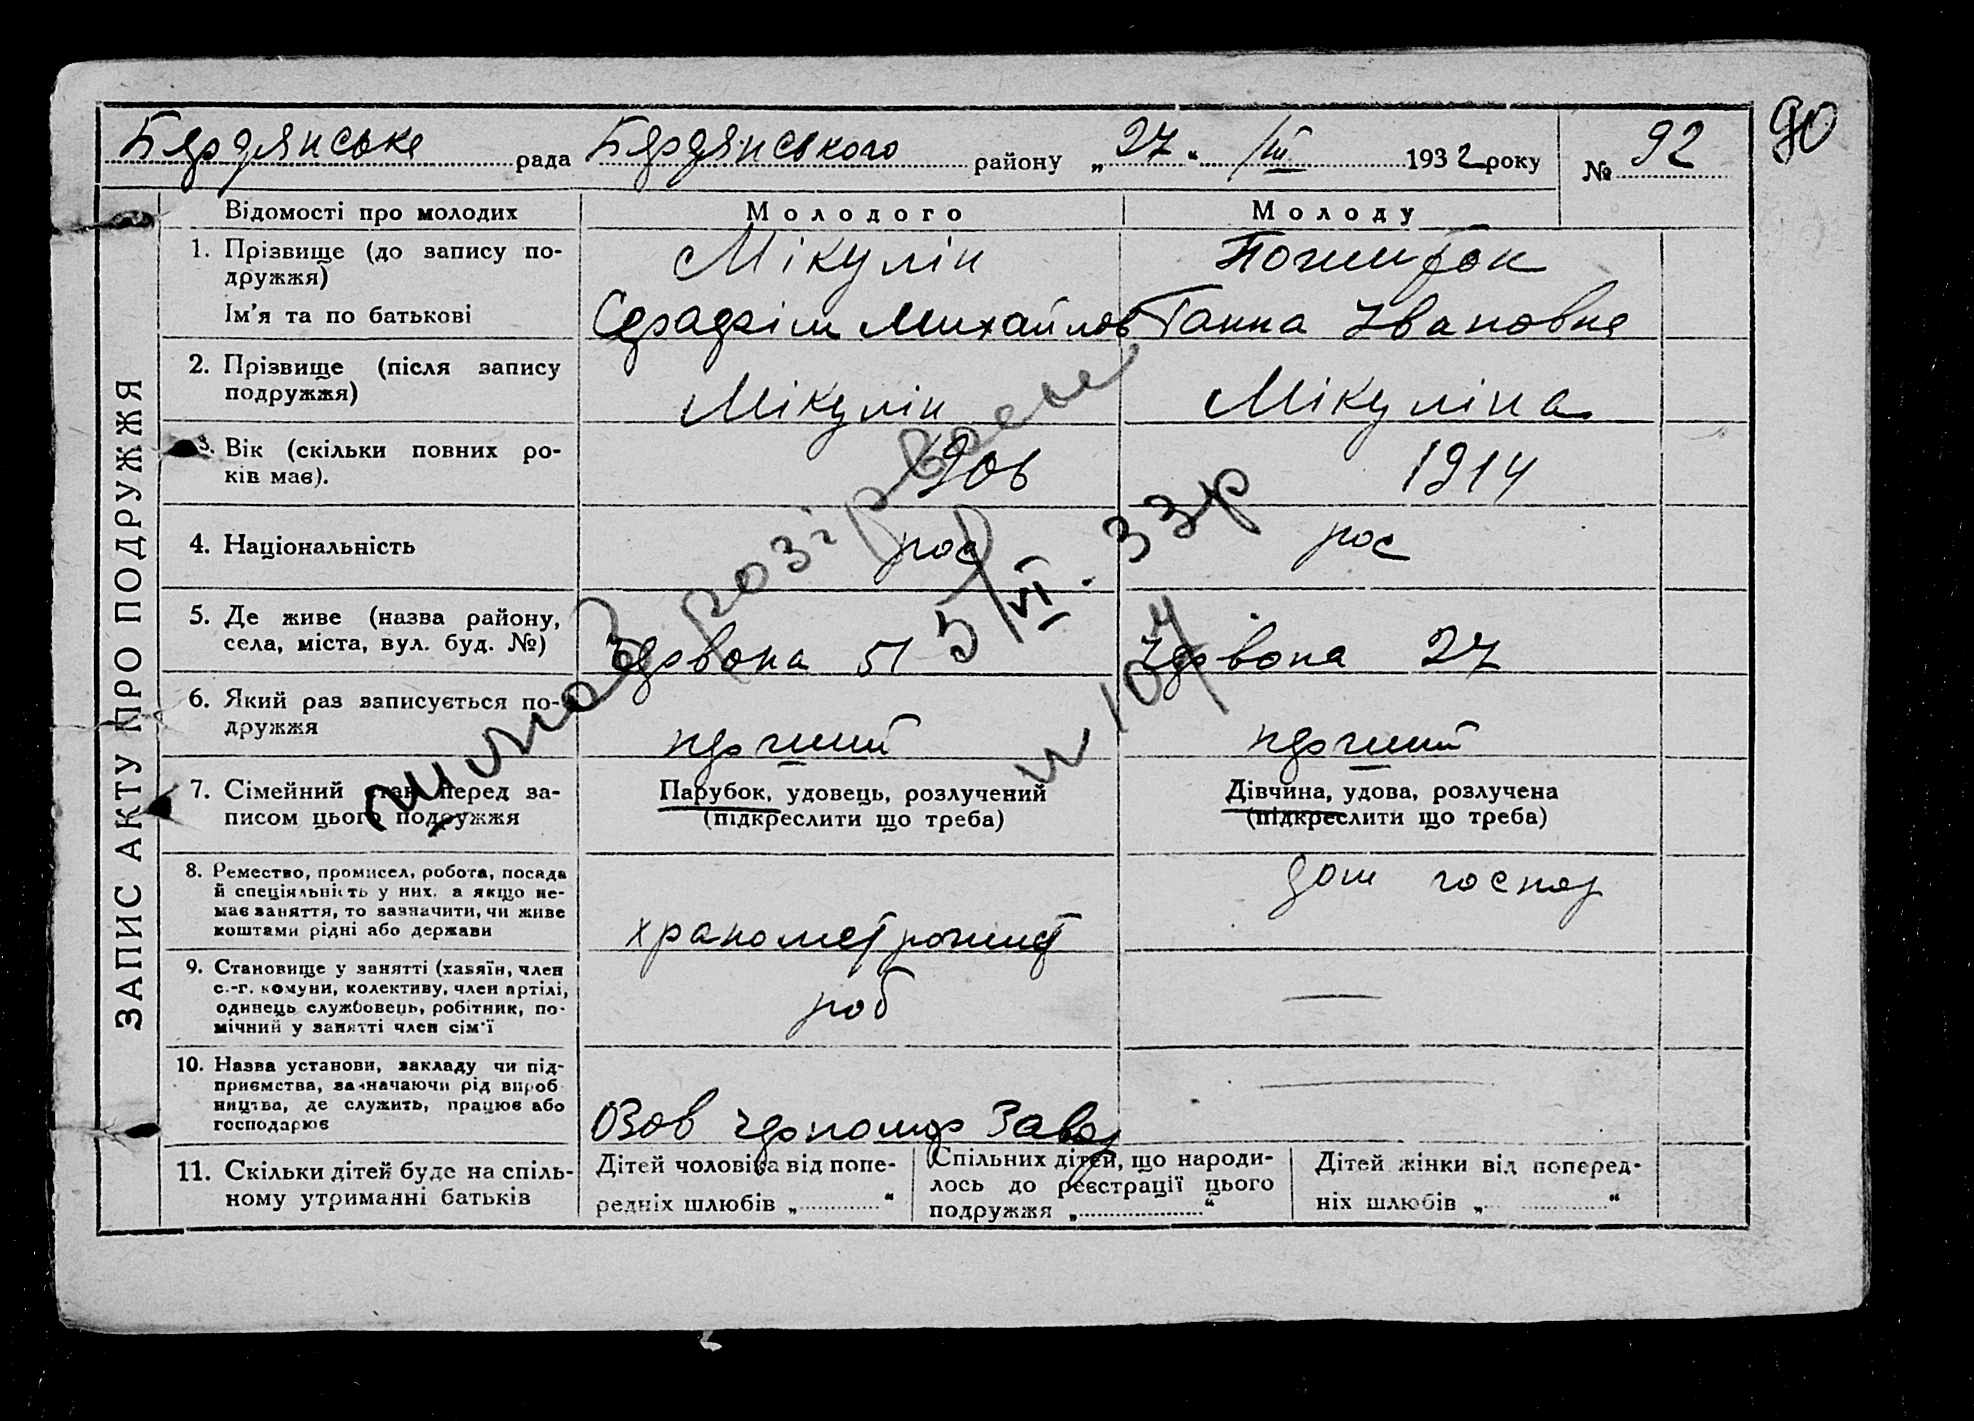 90
Бердянське рада Бердянського району „27“ /III 1932 року № 92
ЗАПИС АКТУ ПРО ПОДРУЖЖЯ
Відомості про молодих Молодого Молоду
1. Прізвище (до запису по-
дружжя) Мікулін
Ім'я та по батькові Михайлов Ганна Івановна
2. Прізвище (після запису
подружжя) Мікулін Мікуліна
3. Вік (скільки повних ро-
ків має). 1906 1914
4. Національність рос рос
5. Де живе (назва району,
села, міста, вул. буд. №) Червона 51 Червона 27
6. Який раз записується по-
дружжя перший перший
7. Сімейний стан перед за-
писом цього подружжя
Парубок, удовець, розлучений
(підкреслити що треба)
Дівчина, удова, розлучена
(підкреслити що треба)
8. Ремество, промисел, робота, посада
й спеціяльність у них, а якщо не-
має заняття, то зазначити, чи живе
коштами рідні або держави
дом господ
9. Становище у занятті (хазяїн, член
с.-г. комуни, колективу, член артілі,
одинець службовець, робітник, по-
мічний у занятті член сім'ї
роб —
10. Назва установи, закладу чи під-
приємства, зазначаючи рід вироб-
ництва, де служить, працює або
господарює
—
Завод
11. Скільки дітей буде на спіль-
ному утриманні батьків
Дітей чоловіка від попе-
редніх шлюбів „ “
Спільних дітей, що народи-
лось до реєстрації цього
подружжя „ “
Дітей жінки від поперед-
ніх шлюбів „ “
шлюб розірваний
5/VI. 33р
№ 107